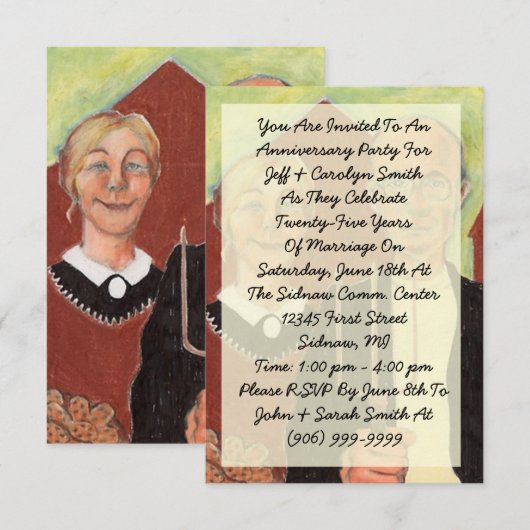 You Are Invited To An
Anniversary Party For
Jeff + Carolyn Smith
As They Celebrate
Twenty-Five Years
Of Marriage On
Saturday, June 18th At
The Sidnaw Comm. Center
12345 First Street
Sidnaw, MI
Time: 1:00 pm - 4:00 pm
Please RSVP By June 8th To
John + Sarah Smith At
(906) 999-9999